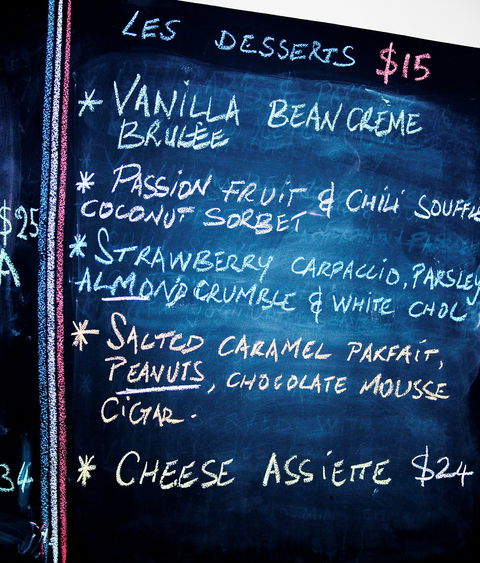 LES DESSERTS $15
* VANILLA BEAN CRÈME
BRULÉE
* PASSION FRUIT & CHILI SOUFFLE
COCONUT SORBET
* STRAWBERRY CARPACCIO, PARSLEY
ALMOND CRUMBLE & WHITE CHOC
* SALTED CARAMEL PARFAIT,
PEANUTS, CHOCOLATE MOUSSE
CIGAR.
* CHEESE ASSIETTE $24
$25
A
34